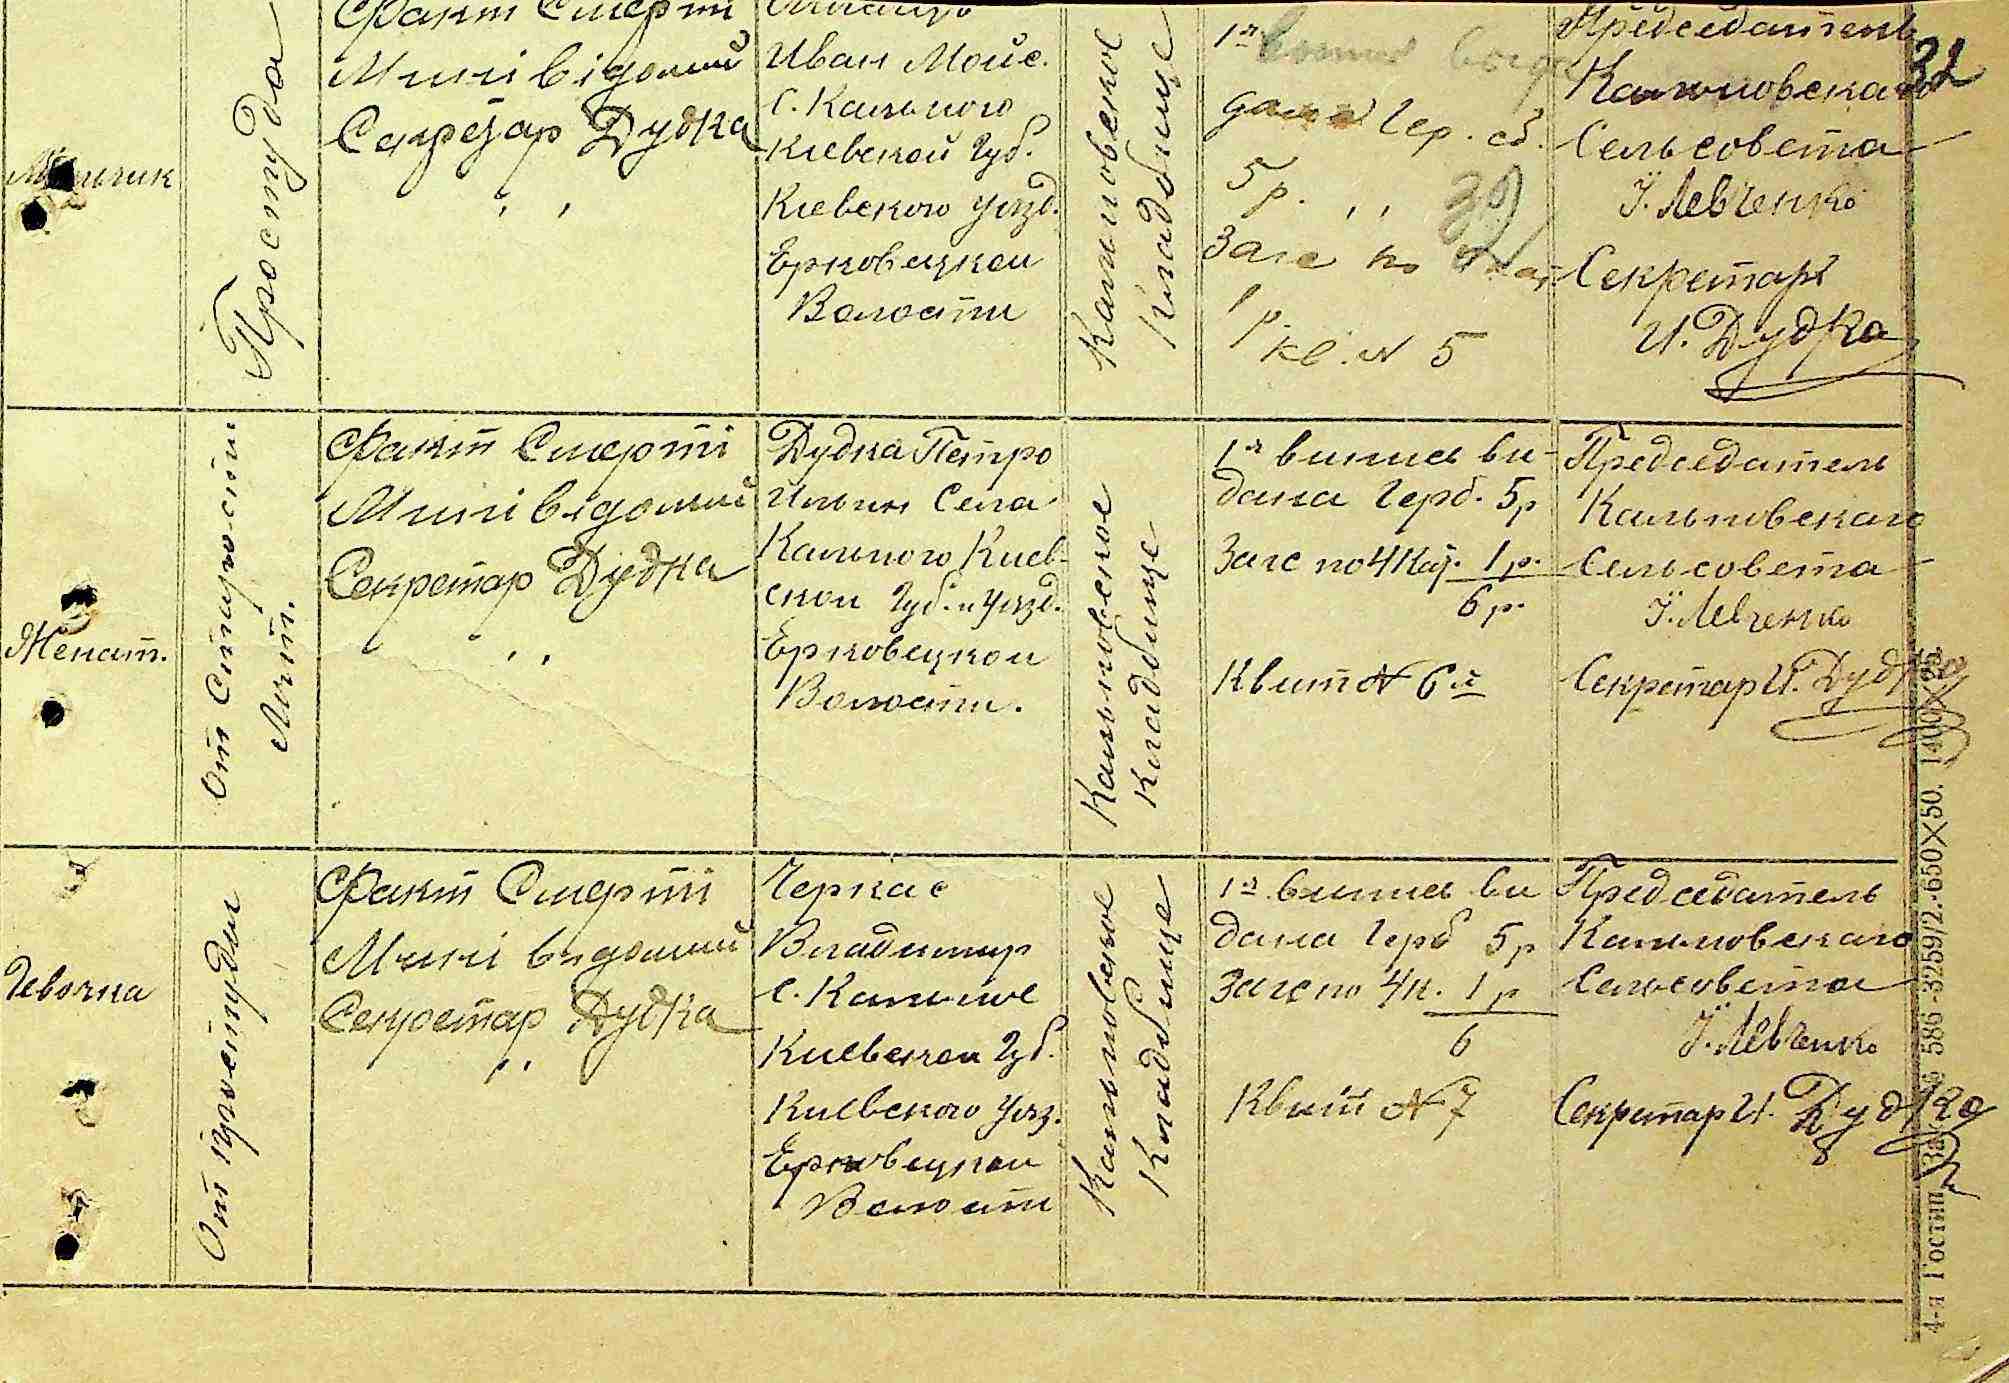 Мальчик
Простуда
Факт Смерті
Мині відомий
Секретар Дудка
" "
Иван Мойс.
с. Кального
Киевской Губ.
Киевского Уезд.
Ерковецкой
Волости
Кальновское
Кладбище
1я
дана Гер. сб.
5 р. " "
Загс по
1 р.
кв. № 5
32
Председатель
Кальновскаго
Сельсовета
У. Левченко
Секретарь
И. Дудка
32
Женат.
От Старости
Лет.
Факт Смерті
Мині відомий
Секретар Дудка
" "
Дудка Петро
Ильин Села
Кального Киев-
ской Губ. и Уезд.
Ерковецкой
Волости.
Кальновское
Кладбище
1я випись ви-
дана Герб. 5 р
Загс по 4 Кат. 1 р.
6 р.
Квит № 6й
Председатель
Кальновскаго
Сельсовета
У. Левченко
Секретар И. Дудка
Девочка
От простуды
Факт Смерті
Мині відомий
Секретар Дудка
" "
Черкас
Владимир
с. Кальное
Киевской Губ.
Киевского Уез.
Ерковецкой
Волости
Кальновское
Кладбище
1я випись ви
дана Герб 5 р
Загс по 4 к. 1 р
6
Квит № 7
Председатель
Кальновскаго
Сельсовета
У. Левченко
Секретар И. Дудка
4-я Гостип Зак. № 586-3259/2.-650×50. 1400×25.